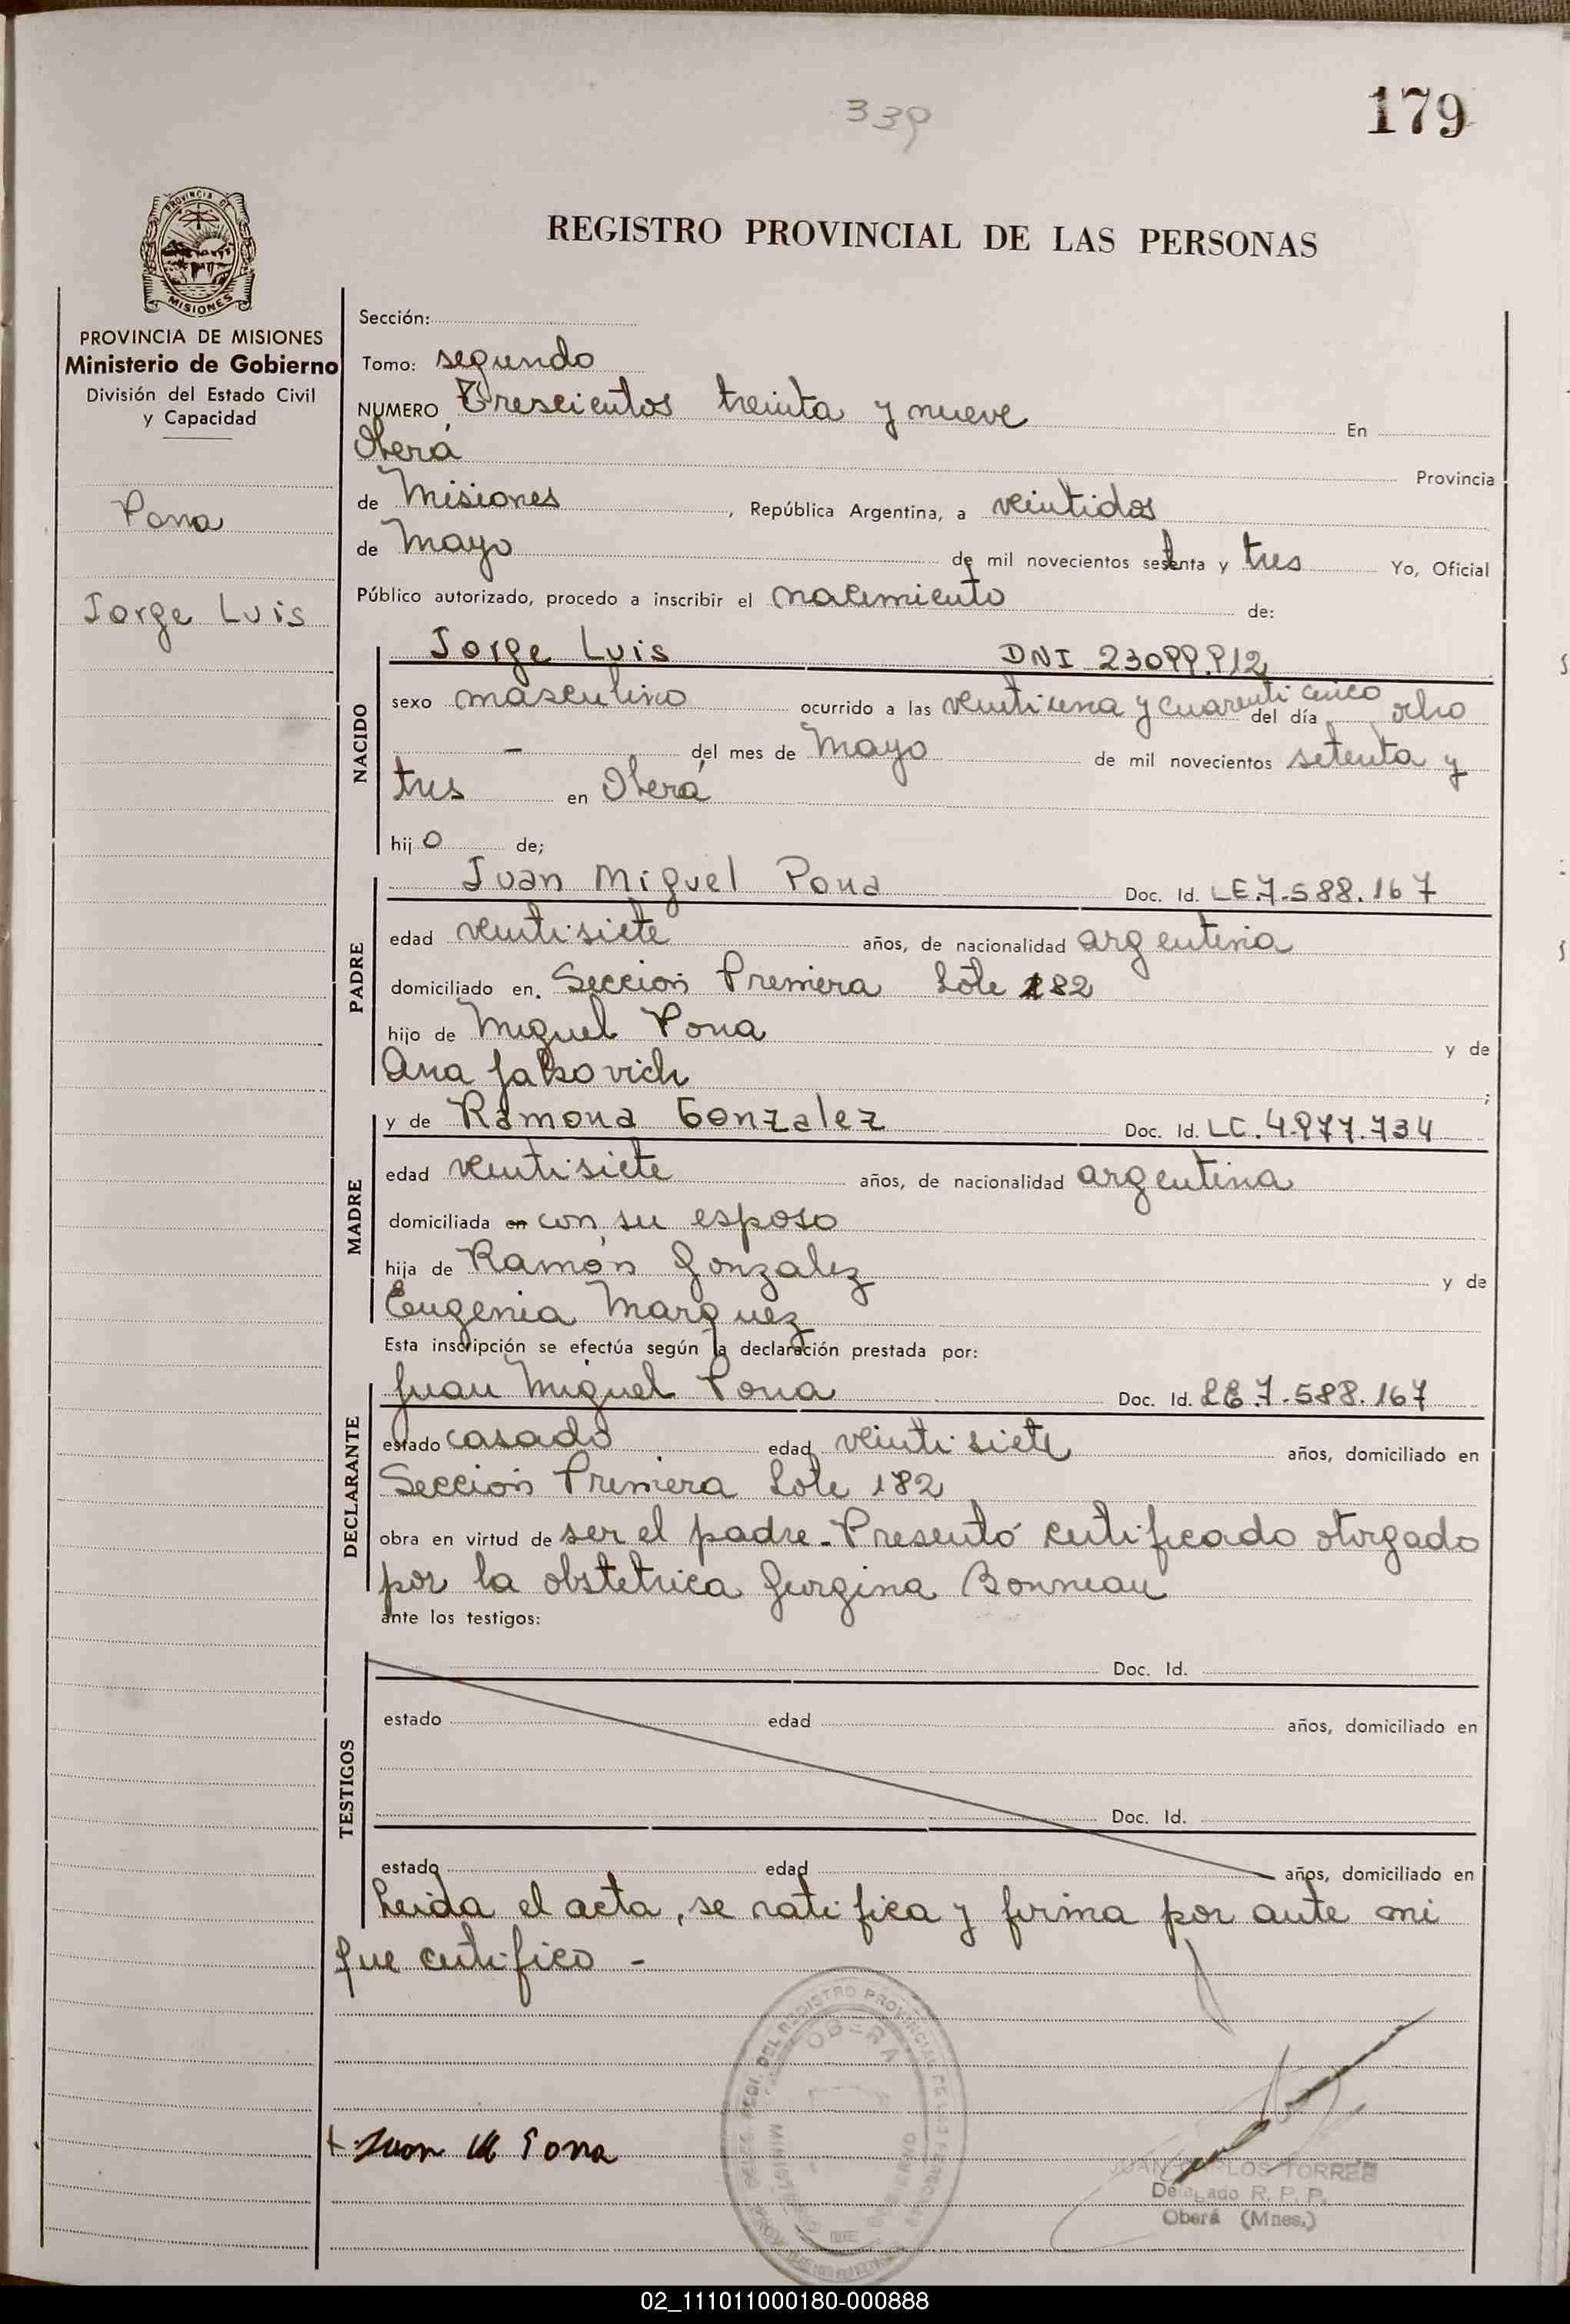 339
179
PROVINCIA DE
MISIONES
REGISTRO PROVINCIAL DE LAS PERSONAS
PROVINCIA DE MISIONES
Ministerio de Gobierno
División del Estado Civil
y Capacidad
Pona
Jorge Luis
Sección:
Tomo: segundo
NUMERO Trescientos treinta y nueve En
Oberá Provincia
de Misiones, República Argentina, a veintidos
de Mayo de mil novecientos setenta y tres Yo, Oficial
Público autorizado, procedo a inscribir el nacimiento de:
NACIDO
Jorge Luis DNI 23099.912
sexo masculino ocurrido a las veintiuna y cuarenticinco del día ocho
- del mes de Mayo de mil novecientos setenta y
tres en Oberá
hijo de;
PADRE
Juan Miguel Pona Doc. Id. LE.7.588.167
edad veintisiete años, de nacionalidad argentina
domiciliado en. Sección Premiera Lote 182
hijo de Miguel Pona y de
Ana Jakovich ;
MADRE
y de Ramona Gonzalez Doc. Id. LC.4.977.734
edad veintisiete años, de nacionalidad argentina
domiciliada en con su esposo
hija de Ramón Gonzalez y de
Eugenia Marquez
Esta inscripción se efectúa según la declaración prestada por:
DECLARANTE
Juan Miguel Pona Doc. Id. LE.7.588.167
estado casado edad veintisiete años, domiciliado en
Sección Premiera Lote 182
obra en virtud de ser el padre. Presentó certificado otorgado
por la obstetrica Georgina Bonneau
ante los testigos:
TESTIGOS
Doc. Id.
estado edad años, domiciliado en
Doc. Id.
estado edad años, domiciliado en
Leida el acta, se ratifica y firma por ante mi
que certifico -
OBERA
+ Juan M Pona
JUAN CARLOS TORRES
Delegado R. P. P.
Oberá (Mnes.)
02_111011000180-000888